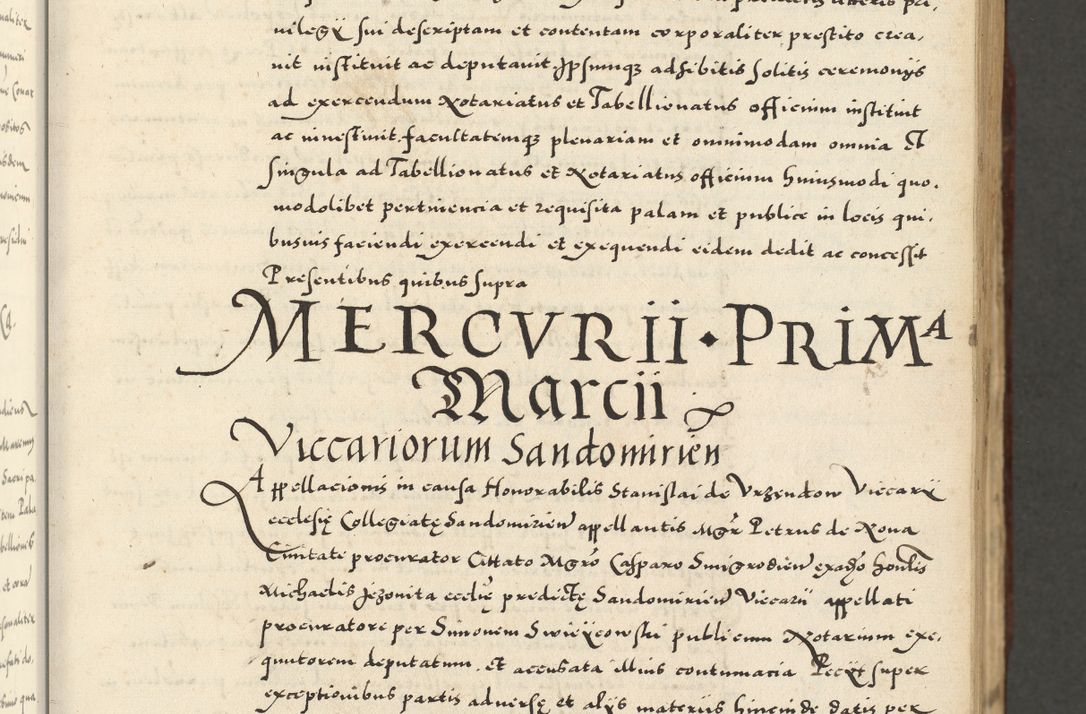 vilegÿ sui descriptam et contentam corporaliter prestito crea,
vit instituit ac deputavit. Ipsumq adhibitis solitis ceremonÿs
ad exercendum Notariatus et Tabellionatus officium instituit
ac investivit. facultatemq plenariam et omnimodam omnia et
singula ad Tabellionatus et Notariatus officium huiusmodi quo,
modolibet pertinencia et requisita palam et publice in locis qui,
busuis faciendi exercendi et exequendi eidem dedit ac concessit
Presentibus quibus supra
MERCVRII · PRIMA
Marcii
Viccariorum Sandomirien
Appellacionis in causa Honorabilis Stanislai de Vrzendow Viccarÿ
ecclesię Collegiatę Sandomirien appellantis Mgr Petrus de Nova
Civitate procurator Cittato Mgro Casparo Smigrodien ex adso honlis
Michaelis Jezonita ecclię predictę Sandomirien Viccarii appellati
procuratore per Simonem Swięcowski publicum Notarium exe,
quutorem deputatum. et accusata illius contumacia Peciit super
exceptionibus partis adversę et alÿs materiis hincinde datis per